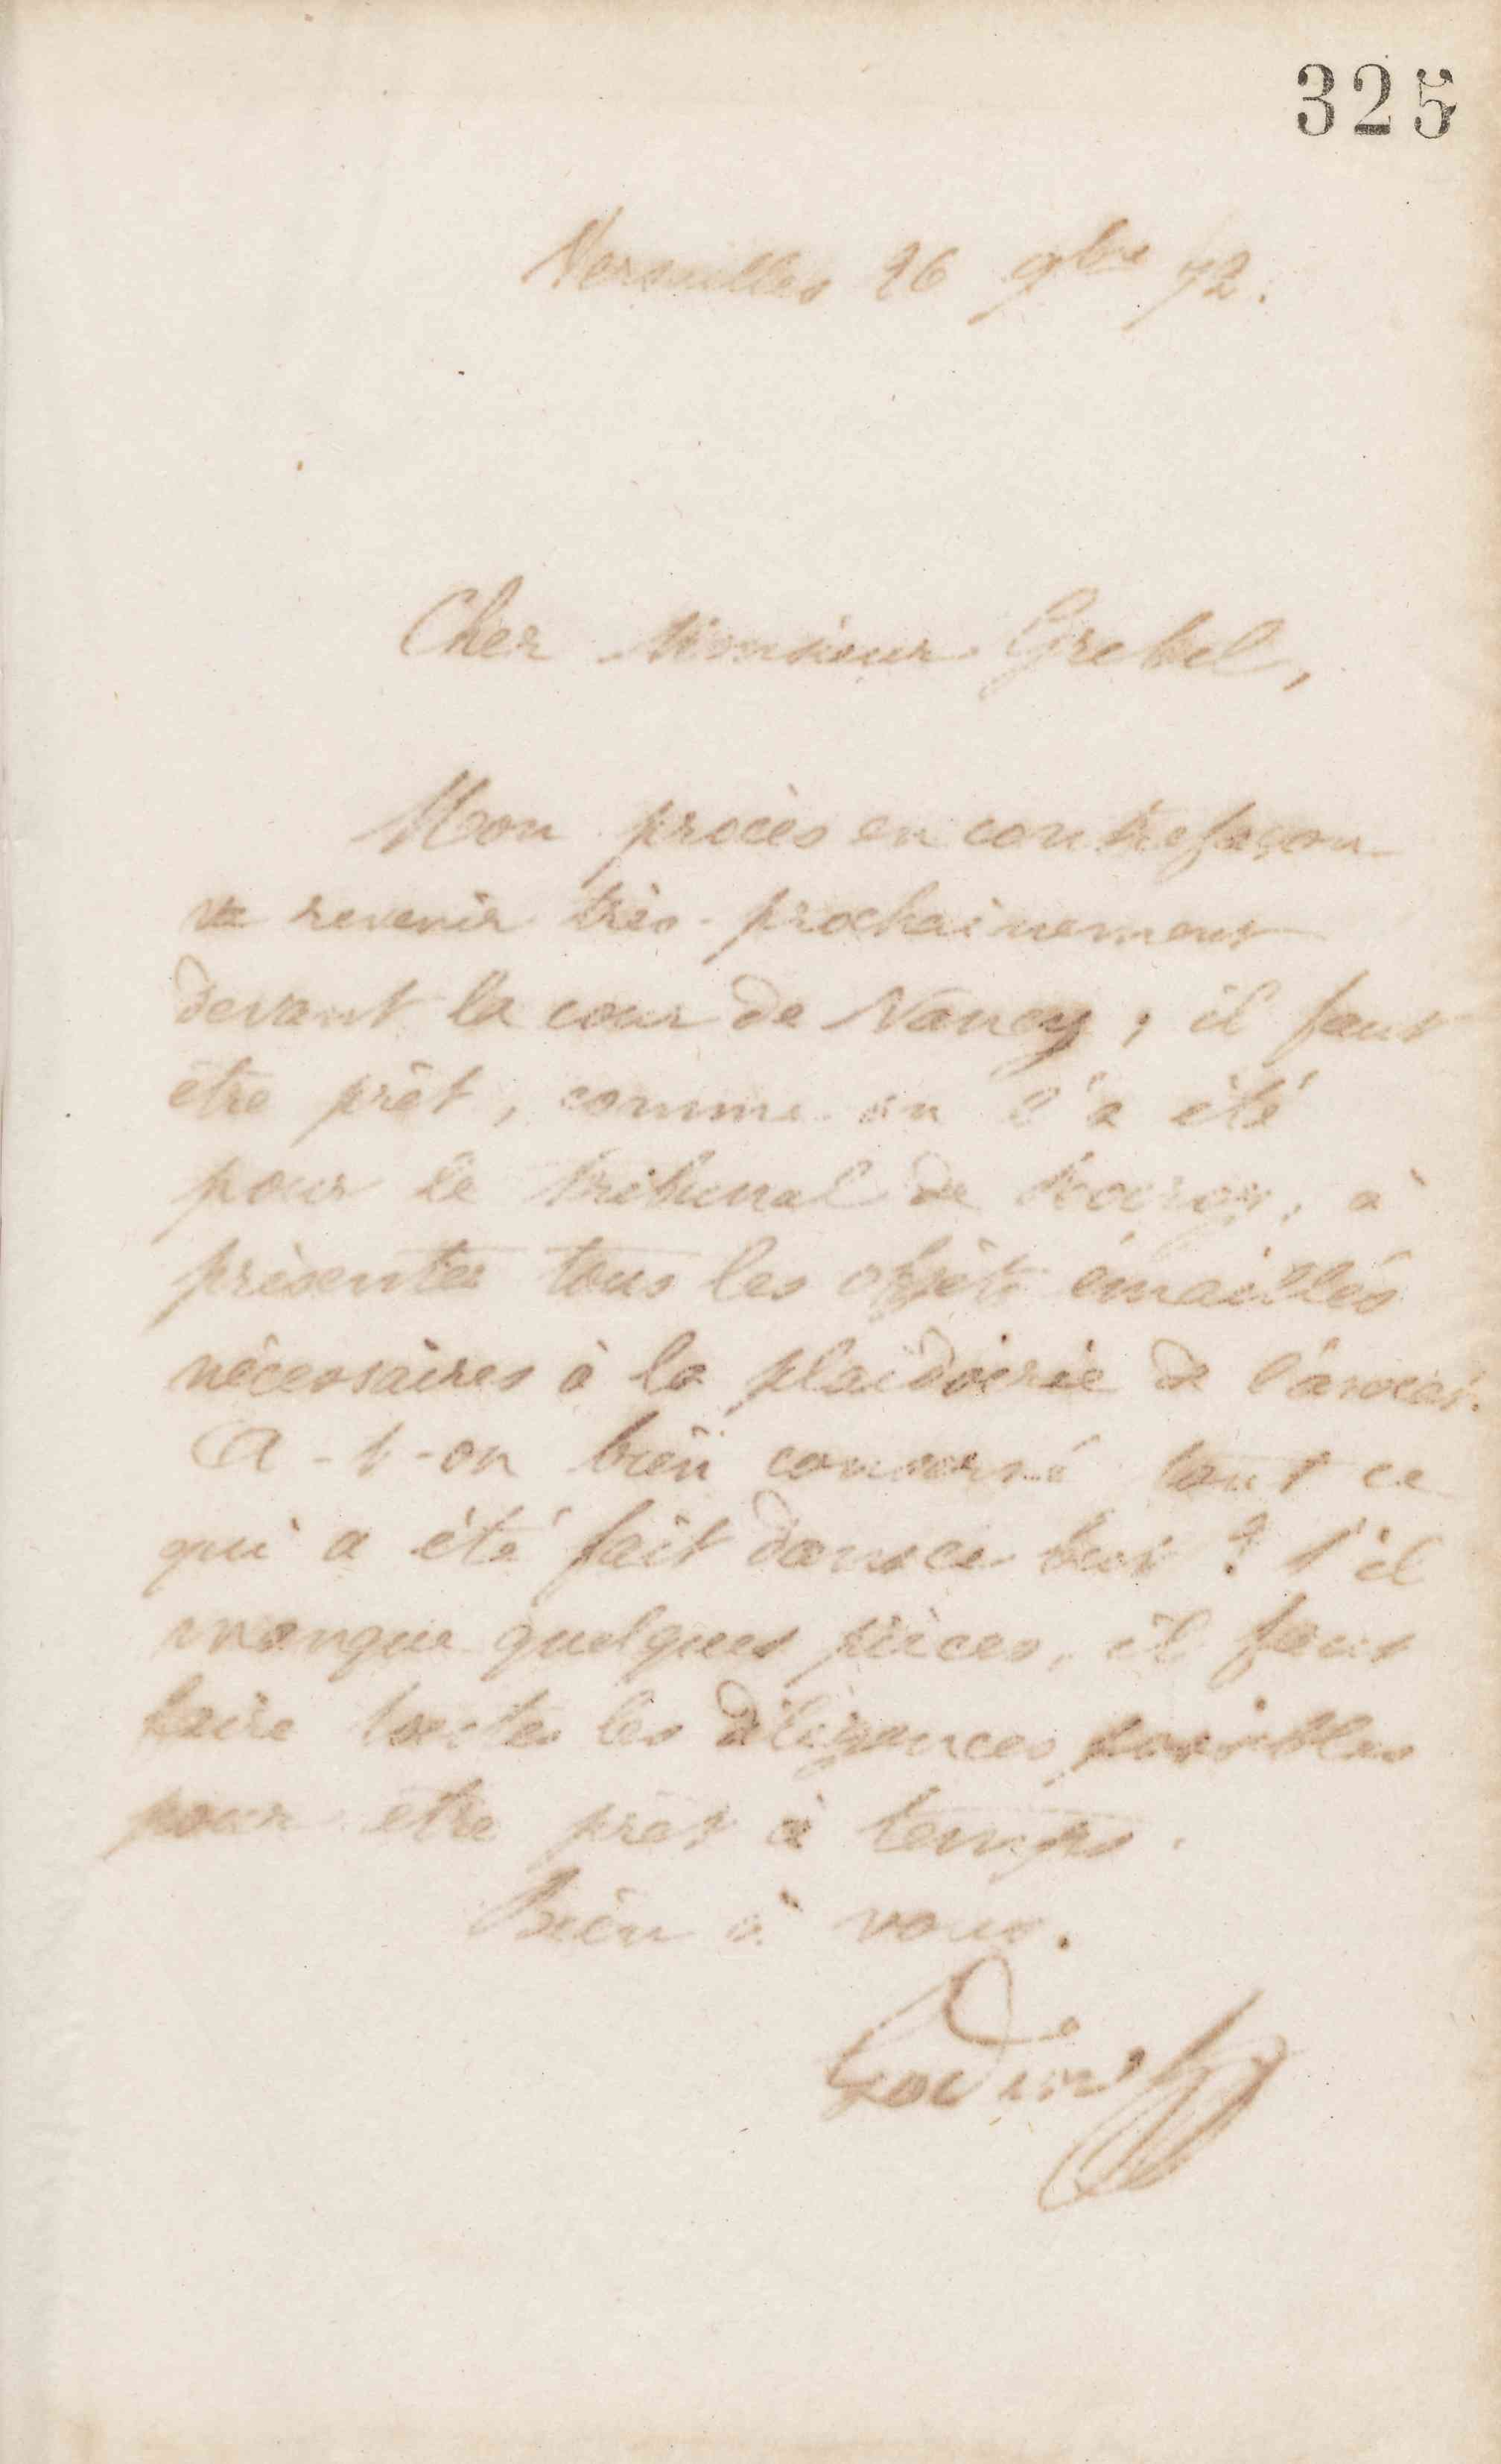 325
Versailles 26 9bre 72.
Cher Monsieur Grebel,
Mon procès en contrefaçon
va revenir très-prochainement
devant la cour de Nancy ; il faut
être prêt, comme on l'a été
pour le tribunal de , à
présenter tous les objets émaillés
nécessaires à la plaidoirie de l'avocat.
A-t-on bien conservé tout ce
qui a été fait dans ce but ? S'il
manque quelques pièces, il faut
faire toutes les diligences possibles
pour être prêt à temps.
Bien à vous.
Godin